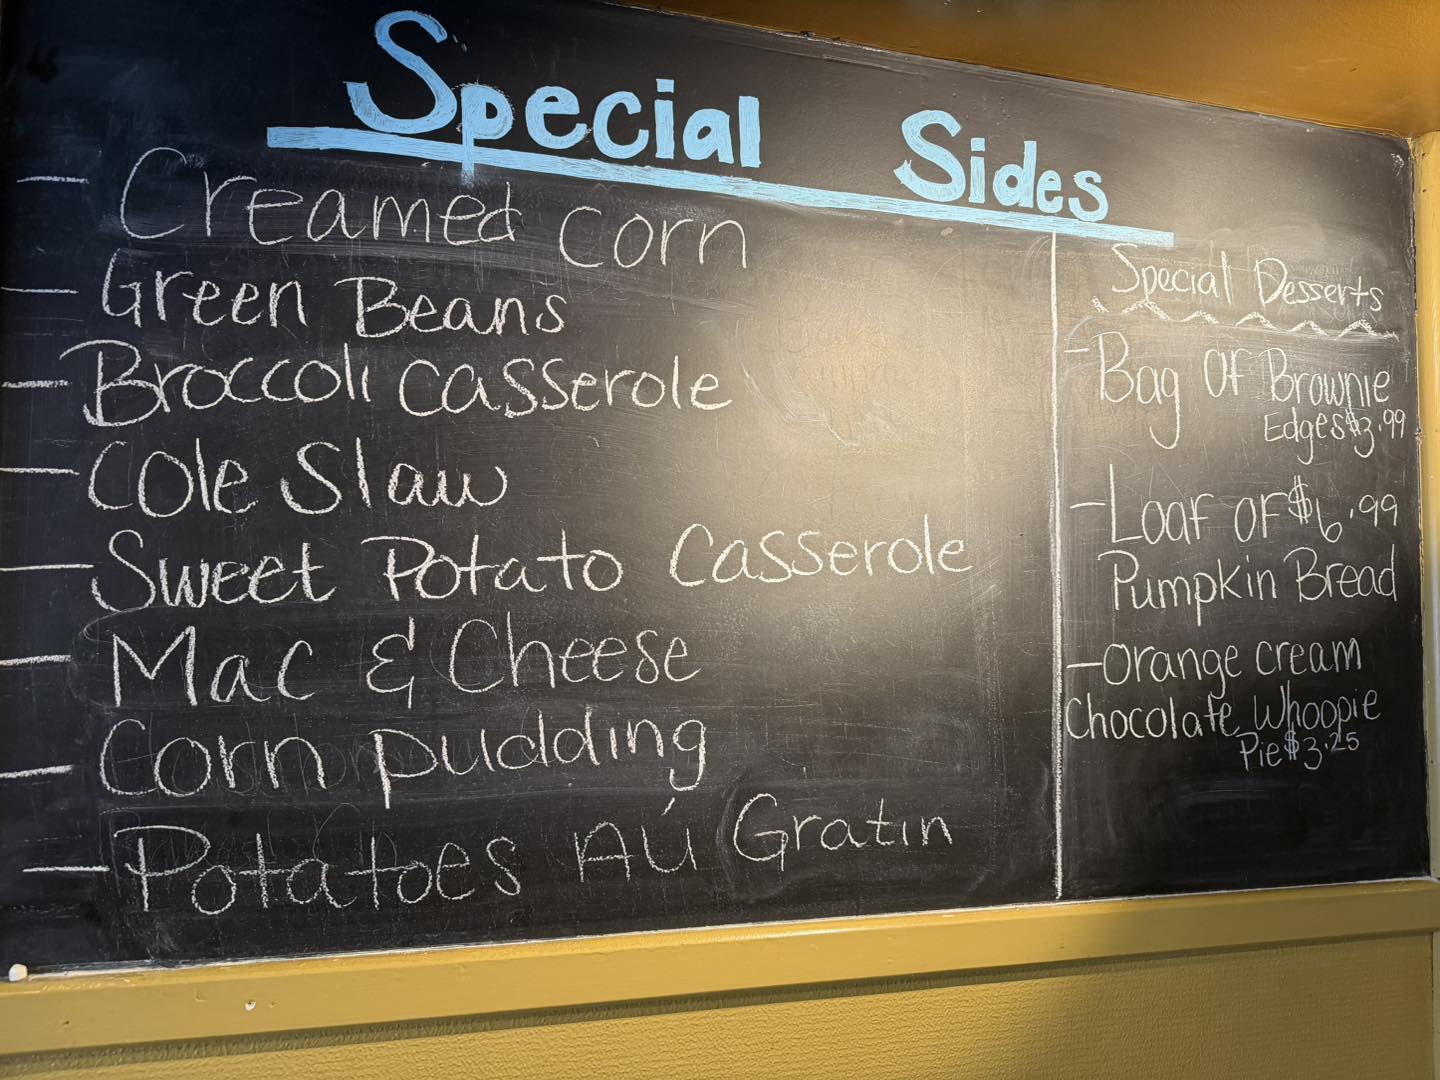 Special Sides
- Creamed corn
- Green Beans
- Broccoli casserole
- Cole Slaw
- Sweet Potato Casserole
- Mac & Cheese
- Corn pudding
- Potatoes Aú Gratin
Special Desserts
- Bag of Brownie
Edges $3.99
- Loaf of $6.99
Pumpkin Bread
- Orange cream
Chocolate Whoopie
Pie $3.25